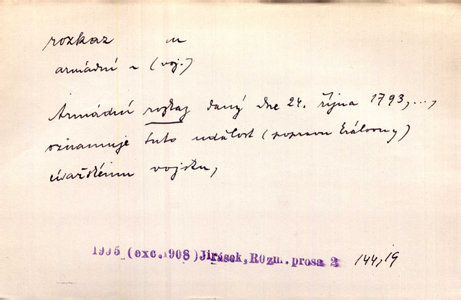 rozkaz m
armádní ~ (voj.)
Armádní rozkaz daný dne 24. října 1793, ...,
oznamuje tuto událost (
císařskému vojsku,
1935 (exc. 1908) Jirásek, Rozm. prosa 2 144,19